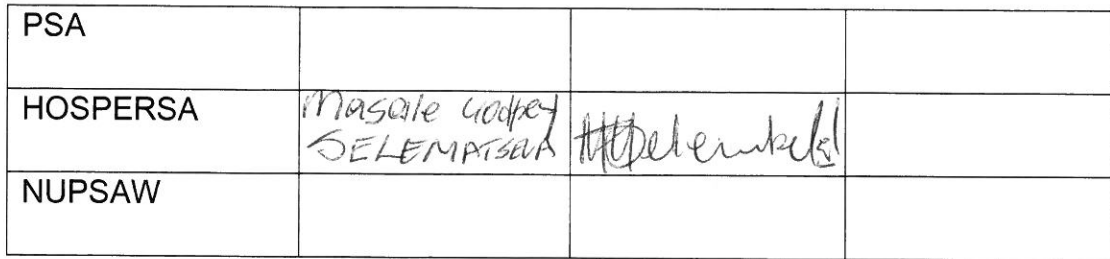 PSA
HOSPERSA
Masale Godfrey
SELEMATSELA
NUPSAW